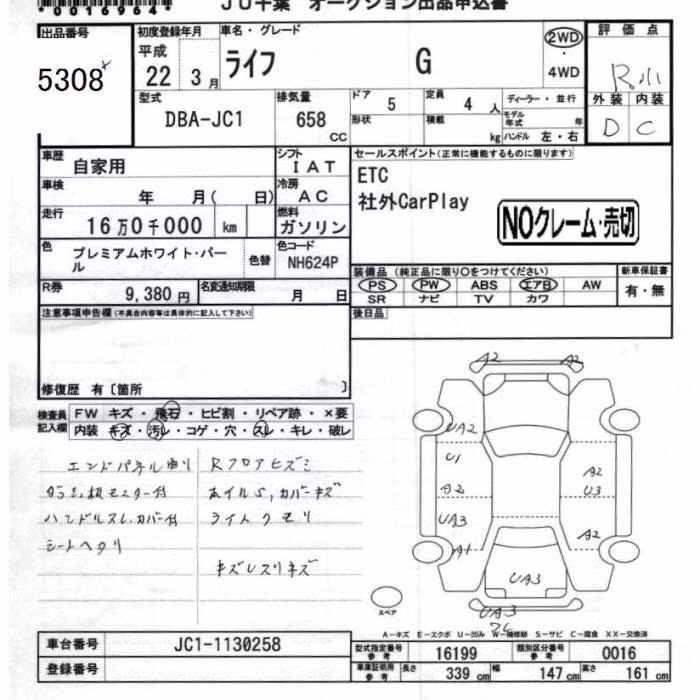 JU千葉 オークション出品申込書
00169641
出品番号 5308
初度登録年月 平成 22 3月
車名・グレード ライフ G
2WD ・ 4WD
評価点 R小
外装 内装
D C
型式 DBA-JC1
排気量 658 CC
ドア 5
定員 4 人
ディーラー・並行
形状
積載 kg
モデル年式 年
ハンドル 左・右
車歴 自家用
シフト IAT
セールスポイント(正常に機能するものに限ります)
ETC
社外CarPlay
NOクレーム・売切
車検 年 月( 日)
冷房 AC
走行 16万0千000 km
燃料 ガソリン
色 プレミアムホワイト・パール
色替
色コード NH624P
装備品 (純正品に限り○をつけてください)
新車保証書
PS PW ABS エアB AW
SR ナビ TV カワ
有・無
R券 9,380円
名変通知期限 月 日
後日品
注意事項申告欄(不具合内容等は具体的に記入して下さい)
修復歴 有〔箇所 〕
検査員記入欄
FW キズ・飛石・ヒビ割・リペア跡・×要
内装 キズ・汚レ・コゲ・穴・スレ・キレ・破レ
エンドパネル曲り Rフロアヒズミ
ホイルS,カバーキズ
ハンドルスレ,カバー付 ライトクモリ
シートヘタリ
キズレスリキズ
A2 A2
UA2
U1
A2
UA3
A1
A2
U3
A2
UA3
UA3
スペア
A-キズ E-エクボ U-凹み W-補修跡 S-サビ C-腐食 XX-交換済
車台番号 JC1-1130258
登録番号
型式指定番号 参考 16199
類別区分番号 参考 0016
車庫証明用 参考 長さ 339 cm 幅 147 cm 高さ 161 cm